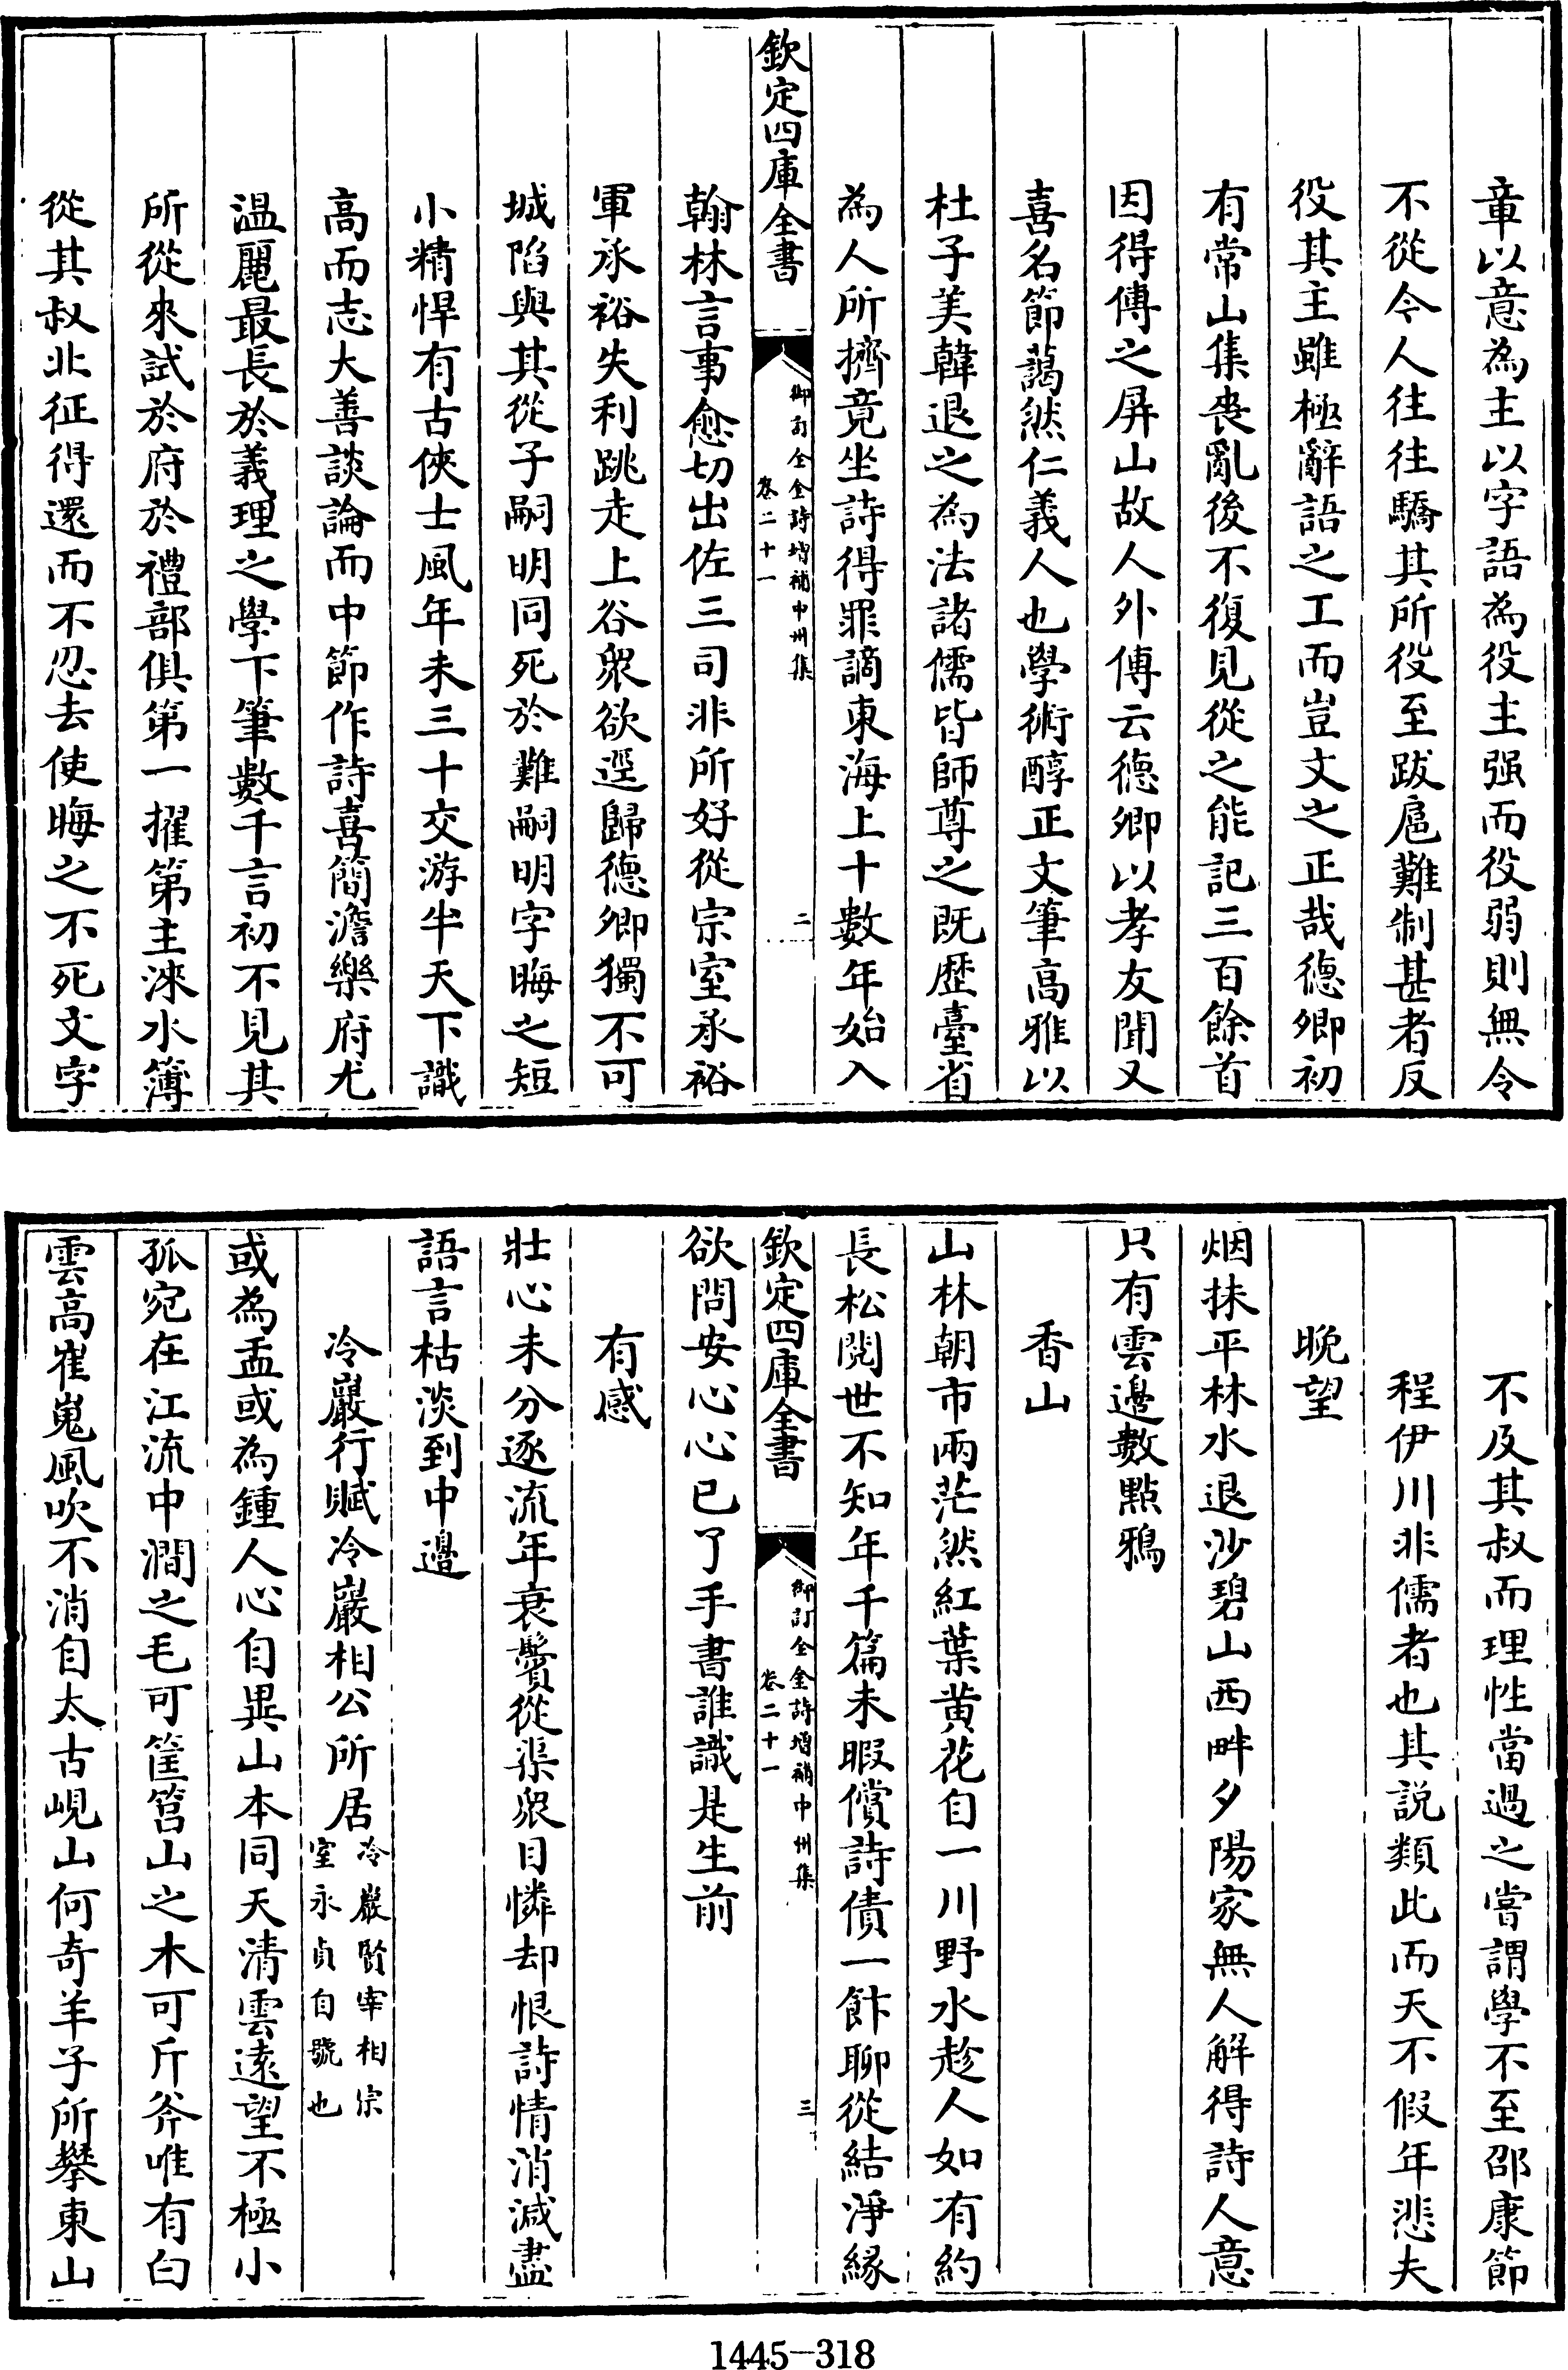 章以意為主以字語為役主强而役弱則無令
不從今人往往驕其所役至跋扈難制甚者反
役其主雖極辭語之工而豈文之正哉德卿初
有常山集喪亂後不復見從之能記三百餘首
因得傳之屏山故人外傳云德卿以孝友聞又
喜名節藹然仁義人也學術醇正文筆高雅以
杜子美韓退之為法諸儒皆師尊之既歴臺省
為人所擠竟坐詩得罪謫東海上十數年始入
欽定四庫全書
御訂全金詩増補中州集
卷二十一
二
翰林言事愈切出佐三司非所好從宗室承裕
軍承裕失利跳走上谷衆欲逕歸德卿獨不可
城陷與其從子嗣明同死於難嗣明字晦之短
小精悍有古俠士風年未三十交游半天下識
高而志大善談論而中節作詩喜簡澹樂府尤
温麗最長於義理之學下筆數千言初不見其
所從來試於府於禮部俱第一擢第主淶水簿
從其叔北征得還而不忍去使晦之不死文字
不及其叔而理性當過之嘗謂學不至邵康節
程伊川非儒者也其説類此而天不假年悲夫
晩望
烟抹平林水退沙碧山西畔夕陽家無人解得詩人意
只有雲邊數點鴉
香山
山林朝市兩茫然紅葉黄花自一川野水趁人如有約
長松閲世不知年千篇未暇償詩債一飰聊從結淨緣
欽定四庫全書
御訂全金詩増補中州集
卷二十一
三
欲問安心心已了手書誰識是生前
有感
壯心未分逐流年衰鬢從渠衆目憐却恨詩情消減盡
語言枯淡到中邊
冷巖行賦冷巖相公所居
冷巖賢宰相宗
室永貞自號也
或為盂或為鍾人心自異山本同天清雲遠望不極小
孤宛在江流中澗之毛可筐筥山之木可斤斧唯有白
雲高崔嵬風吹不消自太古峴山何竒羊子所攀東山
1445-318